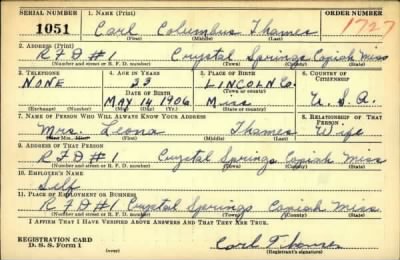 SERIAL NUMBER 1. NAME (Print) ORDER NUMBER
1051 Carl Columbus Thames 1727
(First) (Middle) (Last)
2. ADDRESS (Print)
R F D #1 Crystal Springs Copiah Miss
(Number and street or R. F. D. number) (Town) (County) (State)
3. TELEPHONE 4. AGE IN YEARS 5. PLACE OF BIRTH 6. COUNTRY OF CITIZENSHIP
NONE 33 LINCOLN CO.
DATE OF BIRTH (Town or county)
MAY 14 1906 Miss U. S. A.
(Exchange) (Number) (Mo.) (Day) (Yr.) (State or country)
7. NAME OF PERSON WHO WILL ALWAYS KNOW YOUR ADDRESS 8. RELATIONSHIP OF THAT PERSON
Mrs. Leona Thames Wife
(Mr., Mrs., Miss) (First) (Middle) (Last)
9. ADDRESS OF THAT PERSON
R F D #1 Crystal Springs Copiah Miss
(Number and street or R. F. D. number) (Town) (County) (State)
10. EMPLOYER'S NAME
Self
11. PLACE OF EMPLOYMENT OR BUSINESS
R F D #1 Crystal Springs Copiah Miss
(Number and street or R. F. D. number) (Town) (County) (State)
I AFFIRM THAT I HAVE VERIFIED ABOVE ANSWERS AND THAT THEY ARE TRUE.
REGISTRATION CARD
D. S. S. FORM 1 (over) Carl Thames
(Registrant's signature)